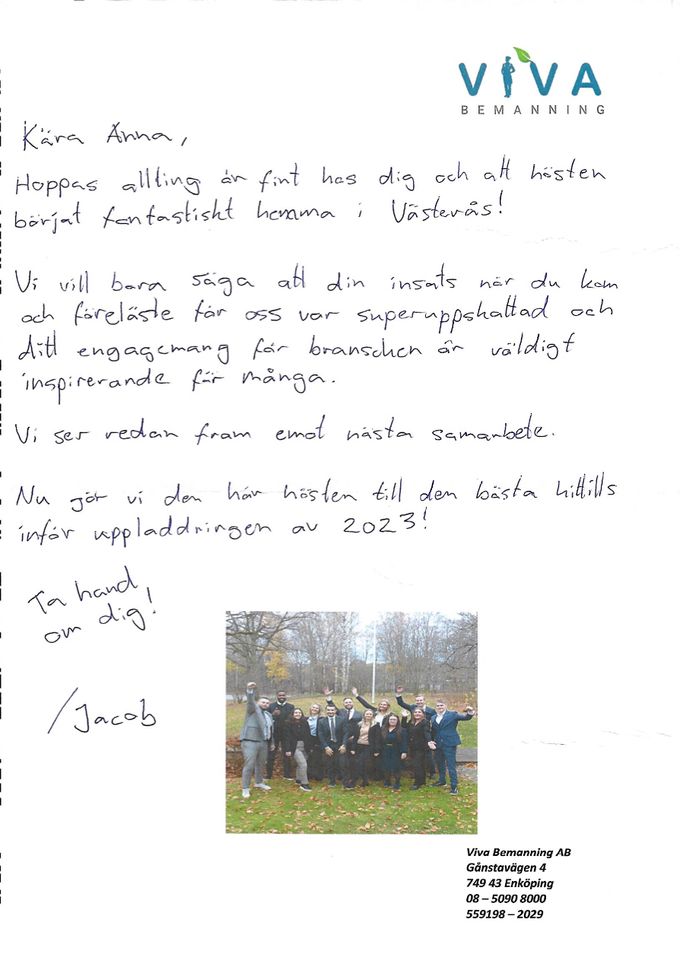 VIVA
BEMANNING
Kära Anna,
Hoppas allting är fint hos dig och att hösten
börjat fantastiskt hemma i Västerås!
Vi vill bara säga att din insats när du kom
och föreläste för oss var superuppskattad och
ditt engagemang för branschen är väldigt
inspirerande för många.
Vi ser redan fram emot nästa samarbete.
Nu gör vi den här hösten till den bästa hittills
inför uppladdringen av 2023!
Ta hand
om dig!
/Jacob
Viva Bemanning AB
Gånstavägen 4
749 43 Enköping
08 – 5090 8000
559198 – 2029